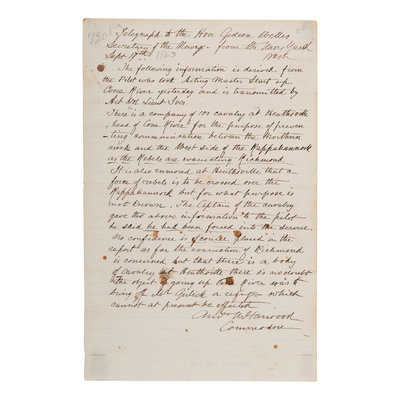 Telegraph to the Hon Gideon Welles
Secretary of the Navy - from the Navy Yard
Sept 17th 1863 Wash
The following information is derived from
the Pilot who took Acting Master Street up
Cone River yesterday and is transmitted by
Act Vol Lieut Ives.
There is a company of 100 cavalry at Heathsville
, head of Cone River for the purpose of preven
ting communication between the Northern
neck and the West side of the Rappahannock
as the Rebels are evacuating Richmond
It is also rumored at Heathsville that a
force of rebels is to be crossed over the
Rappahannock but for what purpose is
not known. The Captain of the cavalry
gave the above information to the pilot
he said he had been forced into the service
No confidence is of course placed in the
report as far the evacuation of Richmond
is concerned but that there is a body
of cavalry at Heathsville there is no doubt
the object of going up Cone River was to
bring off Mr Gulick a refugee which
cannot at present be effected
And A Harwood
Commodore